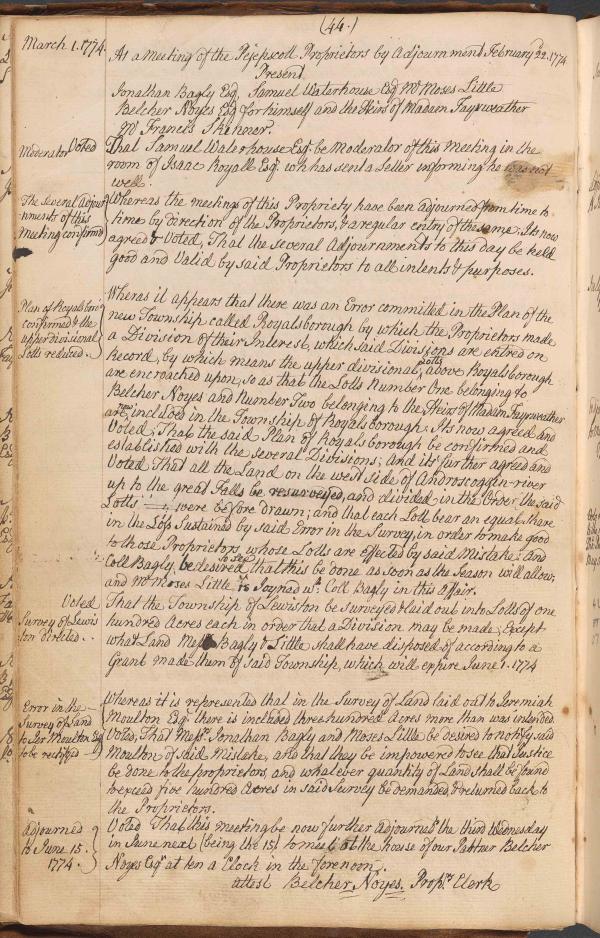 (44.)
March 1. 1774.
At a meeting of the Pejepscott Proprietors by Adjournment February 22. 1774
Present
Jonathan Bagly Esq, Samuel Waterhouse Esq Mr Moses Little
Belcher Noyes Esq for himself and the Heirs of Madam Fayrweather
Mr Francis Skinner.
Moderator
Voted That Samuel Waterhouse Esqr. be Moderator of this Meeting in the
room of Isaac Royall Esqr. who has sent a Letter informing he was not
well.
The Several Adjour
nments of this
meeting confirmd
Whereas the meetings of this Propriety have been adjourned from time to
time by direction of the Proprietors, & a regular entry of the same. Its now
agreed & Voted, That the several Adjournments to this day be held
good and Valid by said Proprietors to all intents & purposes.
Plan of Royalsboro
confirmed & the
upper divisional
Lotts reduced.
Wheras it appears that there was an Error committed in the Plan of the
new Township called Royalsborough by which the Proprietors made
a Division of their Interest, which said Divisions are entred on
Record, by which means the upper divisional Lotts above Royalsborough
are encroached upon, so as that the Lotts Number One belonging to
Belcher Noyes and Number Two belonging to the Heirs of Madam Fayrweather
are now included in the Township of Royalsborough: Its now agreed and
Voted, That the said Plan of Royalsborough be confirmed and
established with the several Divisions; And its further agreed and
Voted That all the Land on the west side of Androscoggen-river
up to the great Falls be resurveyed, and divided in the Order the said
Lotts were before drawn; and that each Lott bear an equal share
in the Loss Sustained by said Error in the Survey, in order to make good
to those Proprietors whose Lotts are effected by said Mistake: and
Coll Bagly, be desired to see that this be done as soon as the Season will allow;
and Mr Moses Little is Joyned wth. Coll Bagly in this affair.
Voted
Survey of Lewis
ton directed.
That the Township of Lewiston be surveyed & laid out into Lotts of one
hundred Acres each in order that a Division may be made; Except
what Land Messrs Bagly & Little shall have disposed of according to a
Grant made them of said Township, which will expire June 1. 1774
Error in the
Survey of Land
to Jer Moulton Esq
to be rectifyed
Whereas it is represented that in the Survey of Land laid out to Jeremiah
Moulton Esqr there is included three hundred Acres more than was intended
Voted, That Messrs. Jonathan Bagly and Moses Little be desired to notify said
Moulton of said Mistake, and that they be impowered to see that Justice
be done to the proprietors, and whatever quantity of Land shall be found
to exceed five hundred Acres in said Survey be demanded, & returned back to
the Proprietors.
Adjourned
to June 15.
1774.
Voted That this meeting be now further Adjourned to the third Wednesday
in June next (being the 15) to meet at the house of our Partner Belcher
Noyes Esqr at ten a Clock in the forenoon.
attest Belcher Noyes. Proprs Clerk